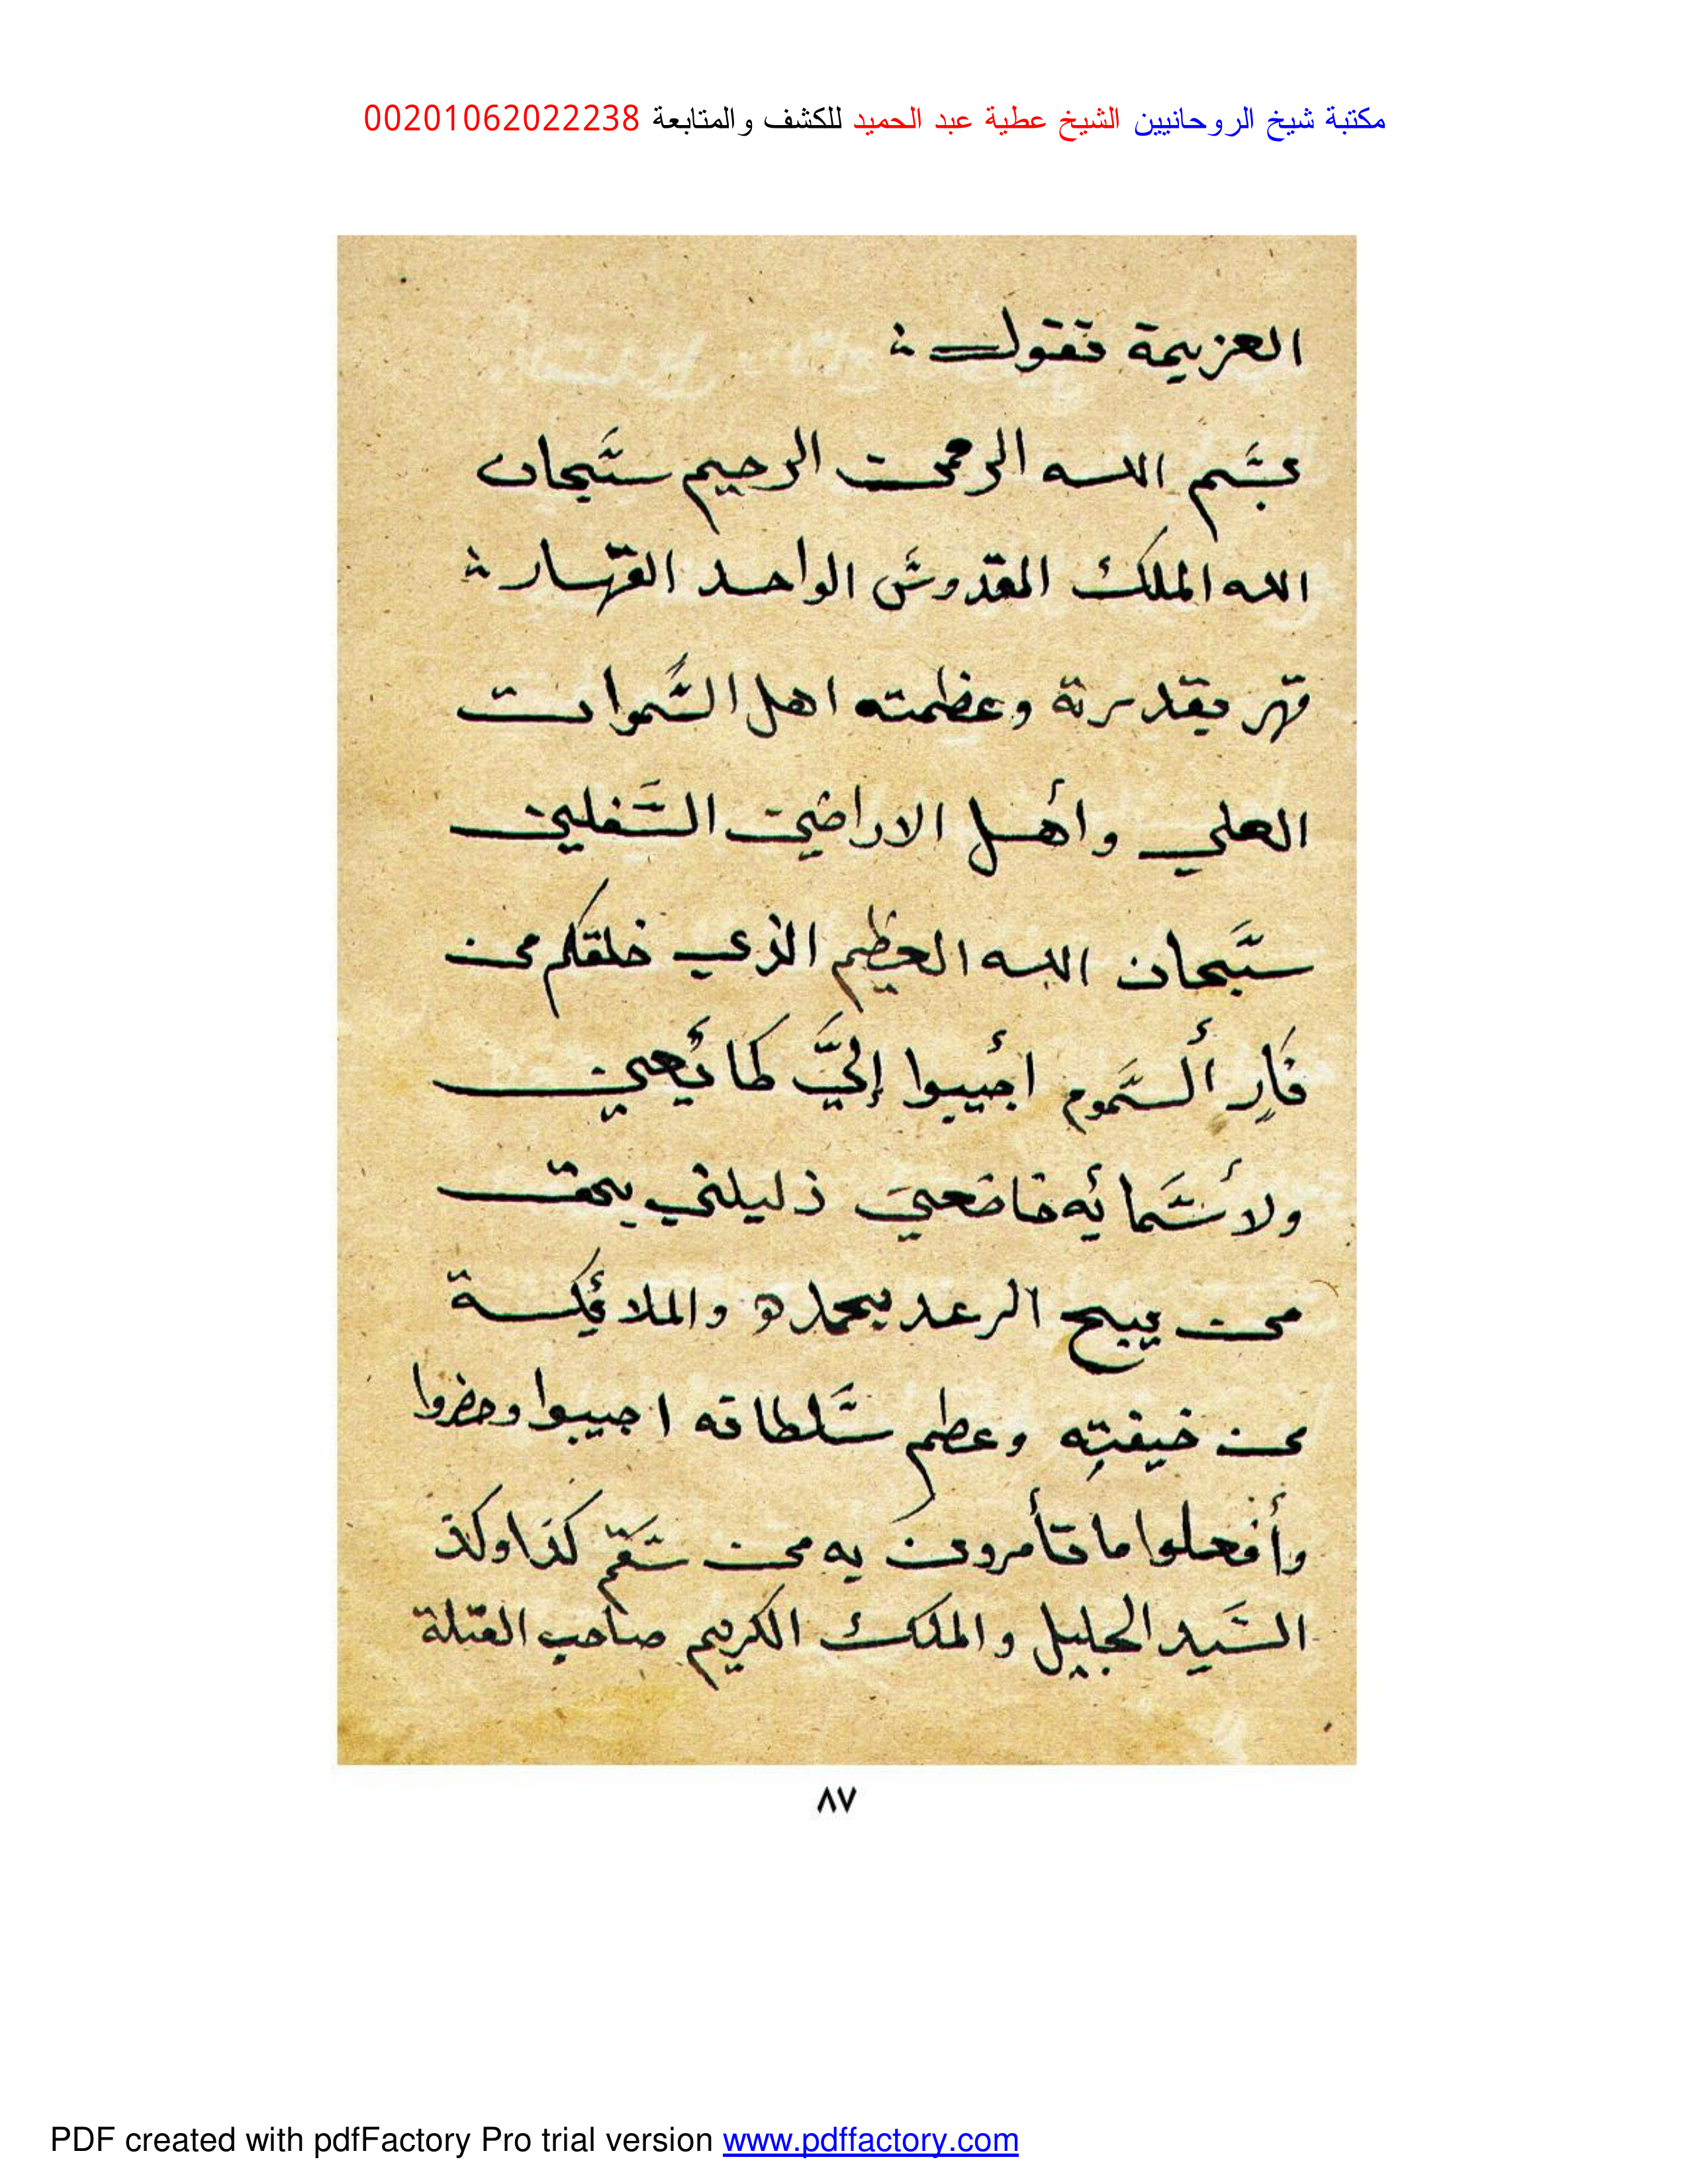 مكتبة شيخ الروحانيين الشيخ عطية عبد الحميد للكشف والمتابعة 00201062022238
العزيمة تقول :
بسم الله الرحمن الرحيم سبحان
الله الملك القدوس الواحد القهار :
قهر بقدرته وعظمته اهل السموات
العلي وأهل الاراضين السفلين
سبحان الله العظيم الذي خلقكم من
نار السموم اجيبوا إليَّ طائعين
ولأسمائه خاضعين ذليلين بحق
من يسبح الرعد بحمده والملائكة
من خيفته وعظم سلطانه اجيبوا وحضروا
وأفعلوا ما تأمرون به من سقم كذا وكذ
السيد الجليل والملك الكريم صاحب القبلة
٨٧
PDF created with pdfFactory Pro trial version www.pdffactory.com